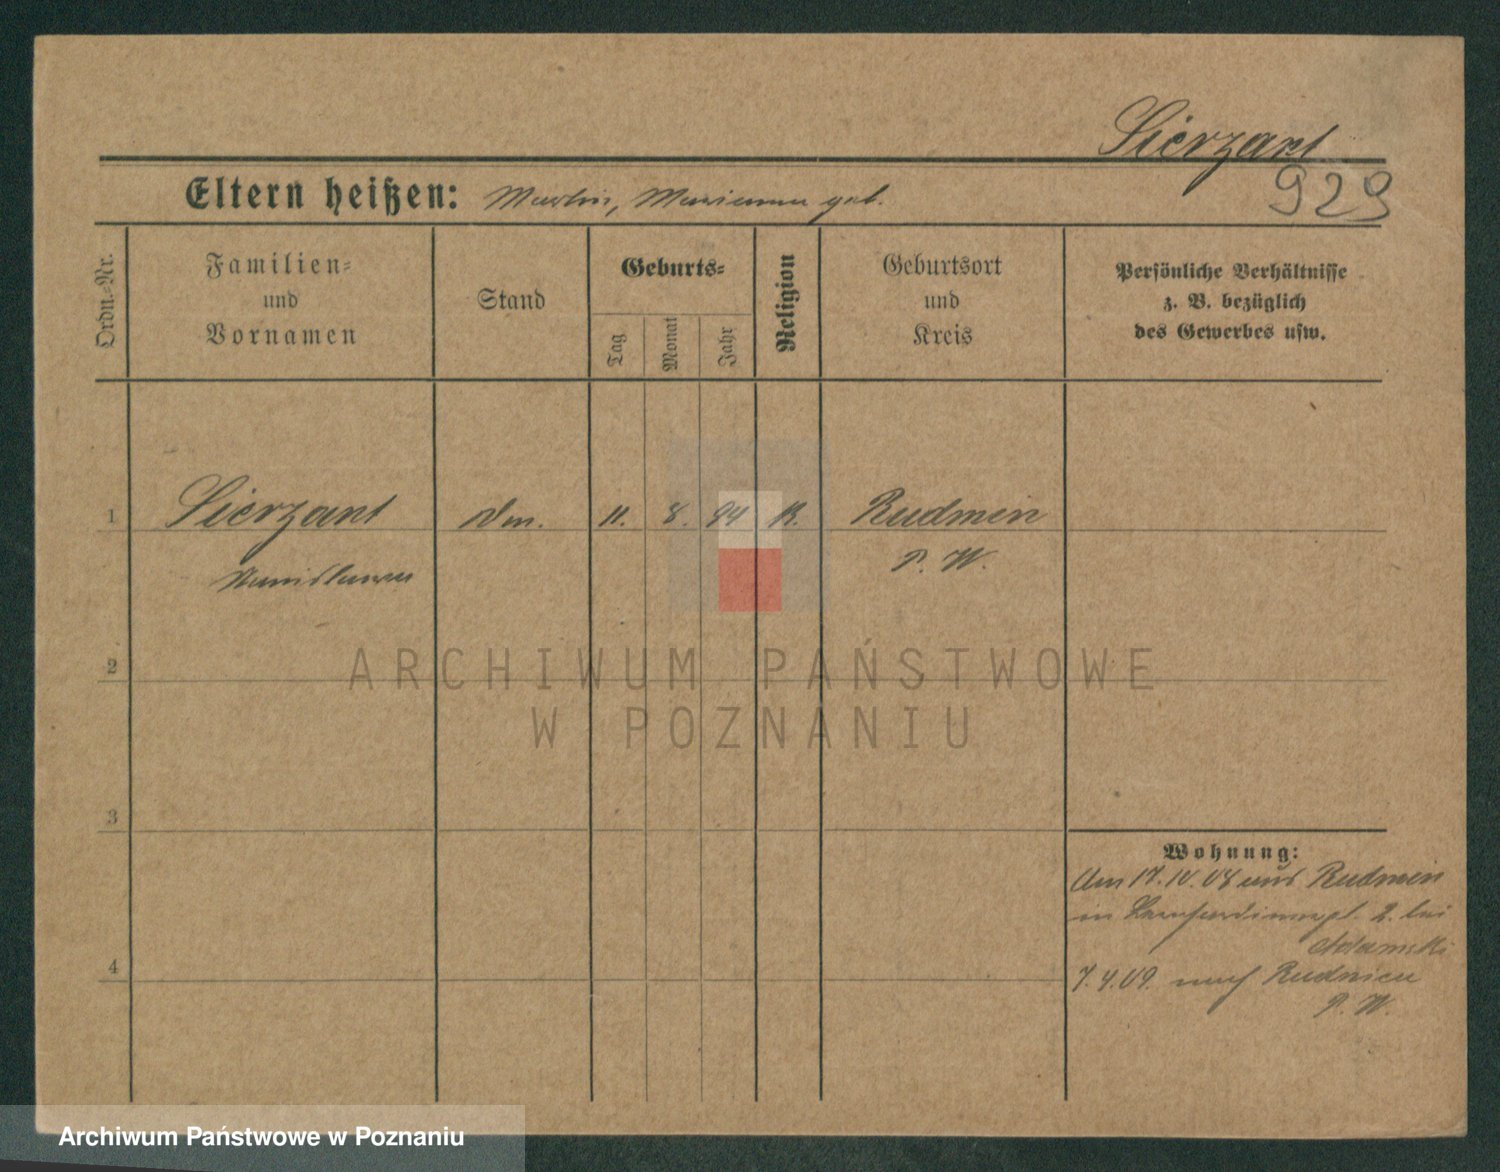 Sierzant
929
Eltern heißen: Martin, Marianna geb.
Ordn.-Nr.
Familien-
und
Vornamen
Stand
Geburts-
Tag
Monat
Jahr
Religion
Geburtsort
und
Kreis
Persönliche Verhältnisse
z. B. bezüglich
des Gewerbes usw.
1 Sierzant 11. 8. 94 K. Rudmin
Stanislawa P. W.
2
ARCHIWUM PAŃSTWOWE
W POZNANIU
3
Wohnung:
Am 17.10.08 aus Rudmin
in 2. bei
Adamski
4
7.4.09. nach
P. W.
Archiwum Państwowe w Poznaniu